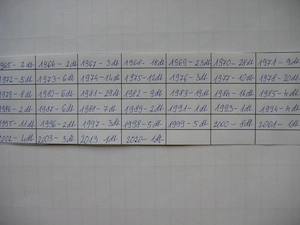 1965- 2db 1966- 2db 1967- 3db 1968- 18db 1969- 23db 1970- 28db 1971- 9db
1972- 5db 1973- 6db 1974- 14db 1975- 12db 1976- 3db 1977- 10db 1978- 20db
1979- 8db 1980- 6db 1981- 29db 1982- 9db 1983- 19db 1984- 14db 1985- 4db
1986- 2db 1987- 6db 1988- 7db 1989- 2db 1991- 1db 1993- 1db 1994- 4db
1995- 11db 1996- 2db 1997- 3db 1998- 5db 1999- 5db 2000- 8db 2001- 6db
2002- 6db 2003- 3db 2019 1db 2020- 1db